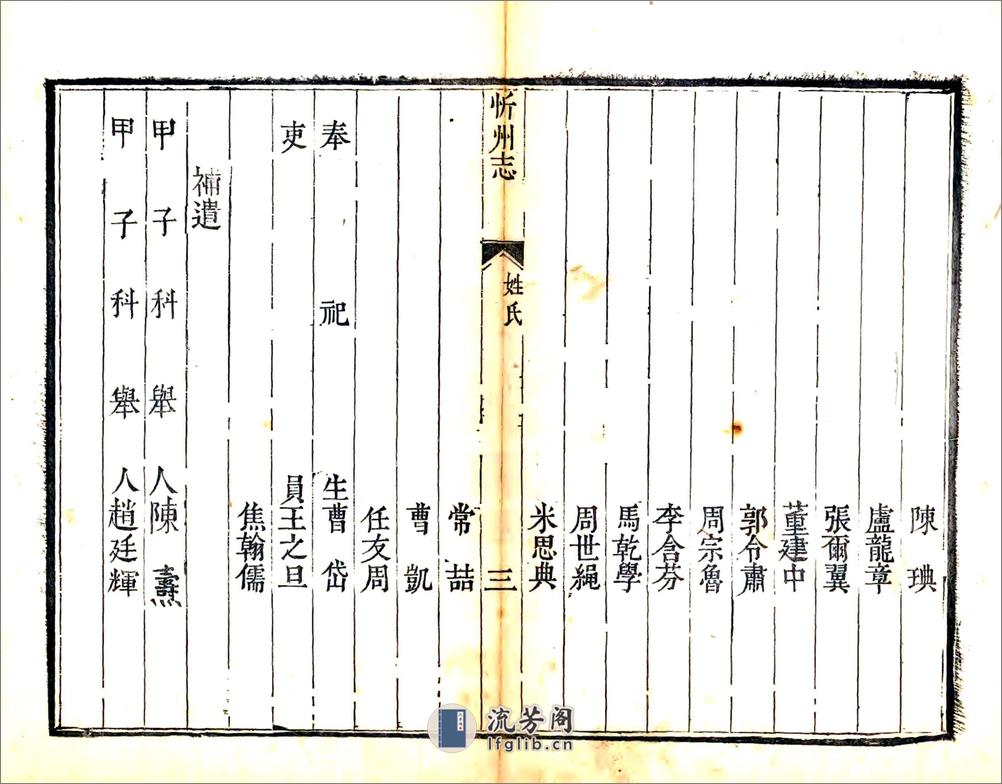 陳 㻛
盧龍章
張爾翼
董建中
郭令肅
周宗魯
李含芬
馬乾學
周世繩
米思典
忻州志
姓氏
三
常 喆
曹 凱
任友周
奉 祀 生曹 岱
吏 員王之旦
焦翰儒
補遺
甲子科舉人陳 燾
甲子科舉人趙廷輝
流芳阁
lfglib.cn